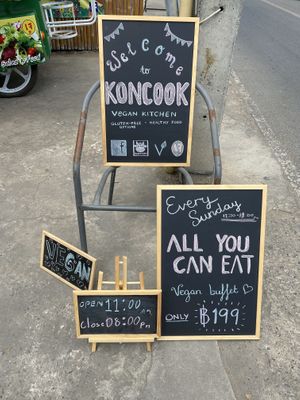 Welcome
to
KONCOOK
VEGAN KITCHEN
GLUTEN-FREE - HEALTHY FOOD
OPTIONS
Every
Sunday
ALL YOU
CAN EAT
Vegan buffet
ONLY ฿199
VEGAN
OPEN 11:00 AM
Close 08:00 Pm